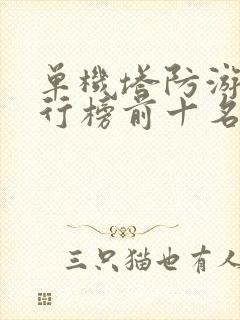 單機塔防游
行榜前十名
三只猫也有人